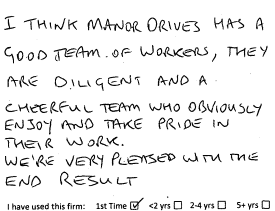 I THINK MANOR DRIVES HAS A
GOOD TEAM. OF WORKERS, THEY
ARE DILIGENT AND A
CHEERFUL TEAM WHO OBVIOUSLY
ENJOY AND TAKE PRIDE IN
THEIR WORK.
WE'RE VERY PLEASED WITH THE
END RESULT
I have used this firm: 1st Time ☑ <2 yrs ☐ 2-4 yrs ☐ 5+ yrs ☐